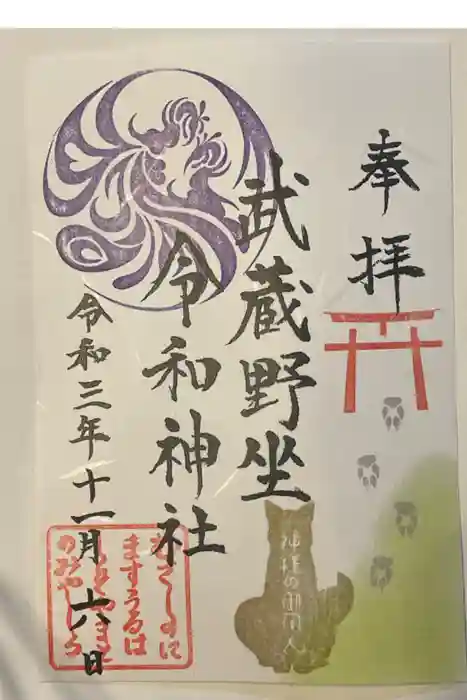 奉拝
武蔵野坐
令和神社
令和三年十一月六日
神様の御用人
むさしのに
ますうるは
しきやまと
のみやしろ